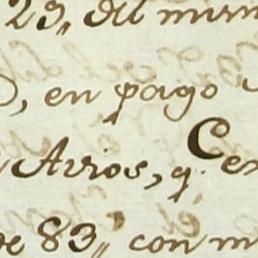 23,, del mism
, en pago
Arros, q. Cex
de 83,, con m